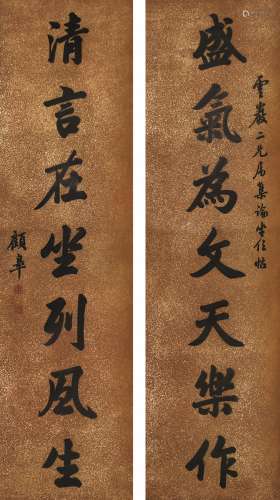 盛氣為文天樂作
雲巖二兄屬集論坐位帖
清言在坐列風生
顧皋